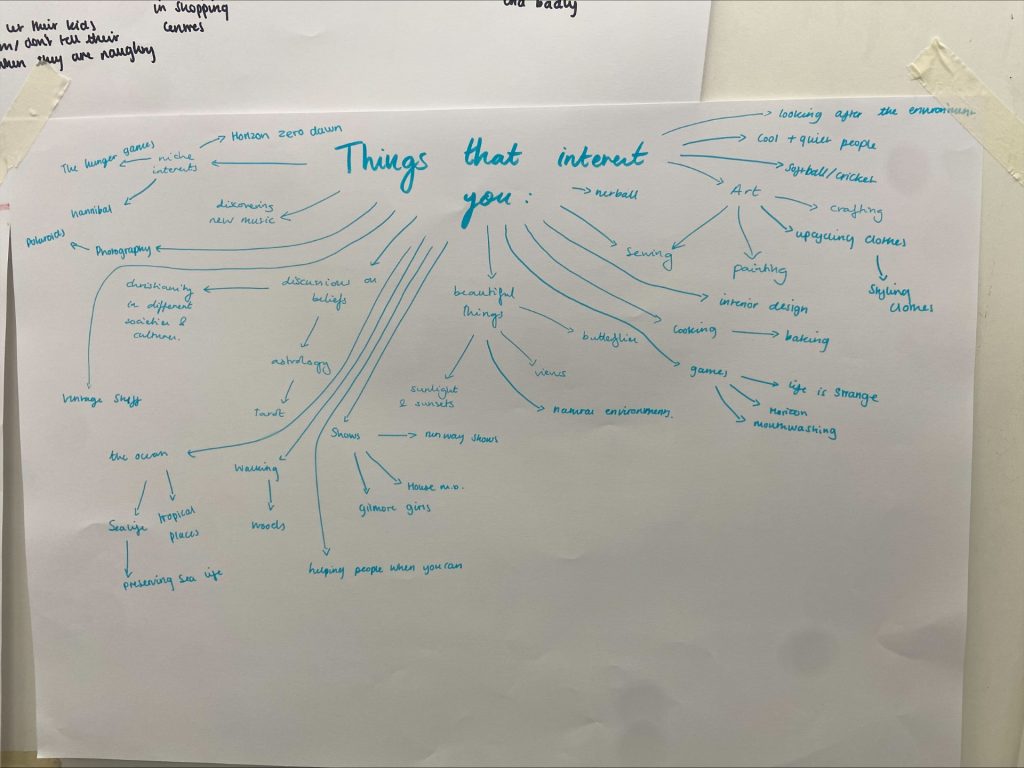 let their kids
in shopping
centres
and badly
m/ don't tell their
when they are naughty
Things that interest
you:
looking after the environment
Cool + quiet people
Softball/cricket
Art
crafting
upcycling clothes
Styling
clothes
painting
Sewing
nerball
interior design
Cooking
baking
games
life is strange
Horizon
mouthwashing
beautiful
things
butterflies
views
natural environments.
sunlight
& sunsets
Horizon zero dawn
niche
interests
The hunger games
hannibal
discovering
new music
Photography
Polaroids
discussions on
beliefs
christianity
in different
societies &
cultures.
astrology
Tarot
Vintage stuff
the ocean
Sealife
tropical
places
preserving sea life
walking
woods
Shows
runway shows
House m.D.
gilmore girls
helping people when you can